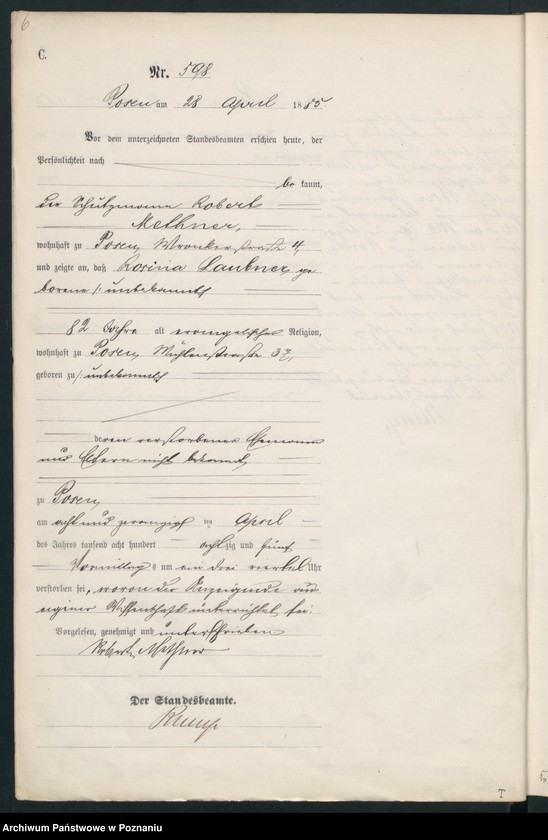 6
C.
Nr. 598
Posen am 28 April 1885.
Vor dem unterzeichneten Standesbeamten erschien heute, der
Persönlichkeit nach
be kannt,
der Schutzmann Robert
Methner,
wohnhaft zu Posen, Wronkerstraße 4,
und zeigte an, daß Rosina Laubner ge
borene /: unbekannt
82 Jahre alt evangelischer Religion,
wohnhaft zu Posen, Mühlenstraße 37,
geboren zu /: unbekannt
deren verstorbener Ehemann
und Eltern nicht bekannt,
zu Posen,
am acht und zwanzigsten April
des Jahres tausend acht hundert achtzig und fünf
Vormittags um ein drei viertel Uhr
verstorben sei, wovon der Anzeigende aus
eigener Wissenschaft unterrichtet sei.
Vorgelesen, genehmigt und unterschrieben
Robert Methner
Der Standesbeamte.
T
Archiwum Państwowe w Poznaniu